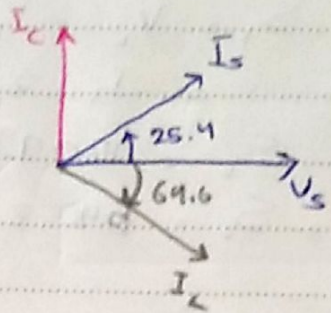 I_C
I_S
25.4
V_S
64.6
I_L